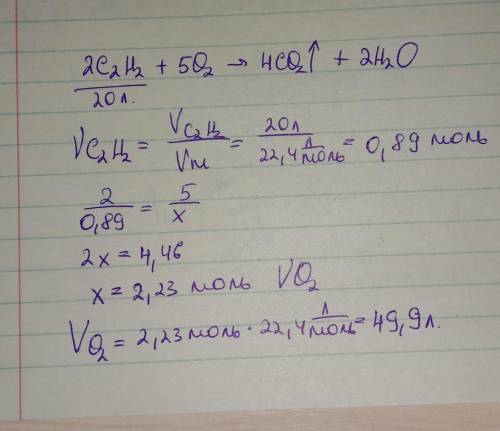 2C₂H₂ + 5O₂ → 4CO₂↑ + 2H₂O
20л.
νC₂H₂ = V C₂H₂ / Vm = 20л / 22,4 л/моль = 0,89 моль
2/0,89 = 5/x
2x = 4,46
x = 2,23 моль νO₂
V O₂ = 2,23 моль · 22,4 л/моль = 49,9л.